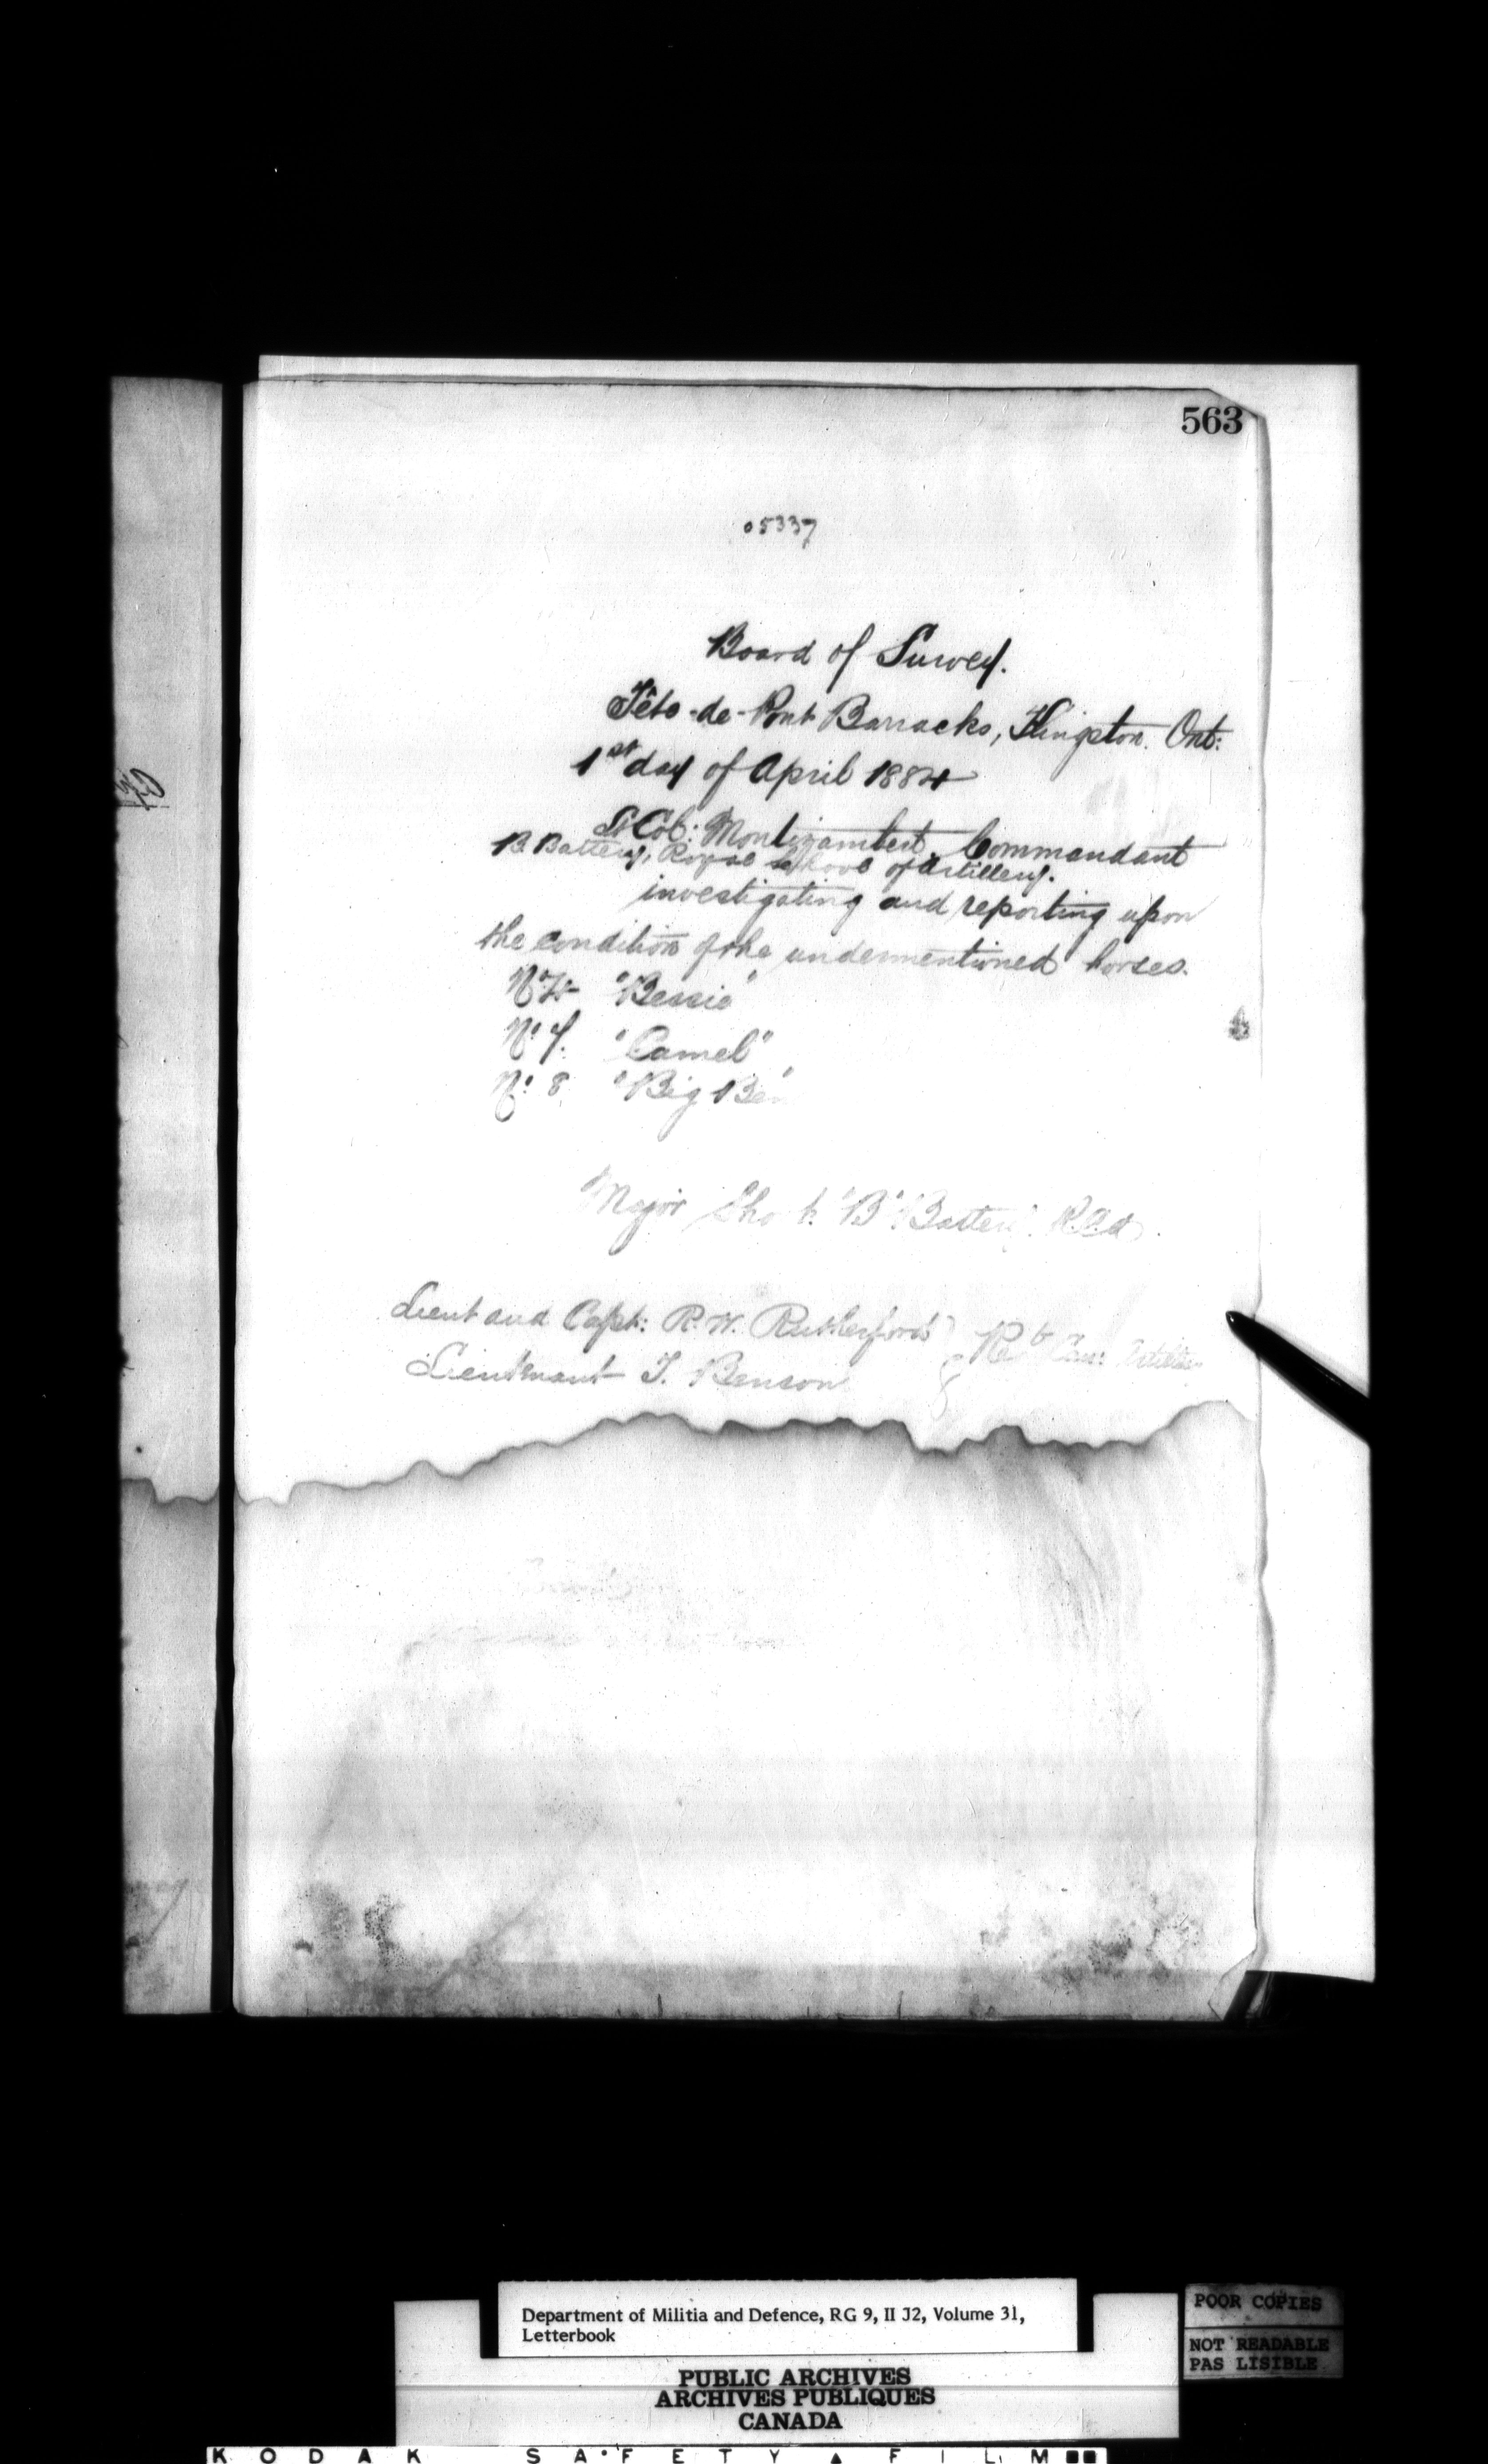 563
05337
Board of Survey.
Tête-de-Pont Barracks, Kingston. Ont:
1st day of April 1884
Lt Col: Montizambert Commandant
B Battery, Royal School of Artillery.
investigating and reporting upon
the condition of the undermentioned horses.
No 4 "Bessie"
No 7. "Camel"
No 8 "Big Ben"
Major "B" Battery
Lieut and Capt: R. W. Rutherford
Lieutenant T. Benson
Department of Militia and Defence, RG 9, II J2, Volume 31,
Letterbook
POOR COPIES
NOT READABLE
PAS LISIBLE
PUBLIC ARCHIVES
ARCHIVES PUBLIQUES
CANADA
KODAK SAFETY FILM